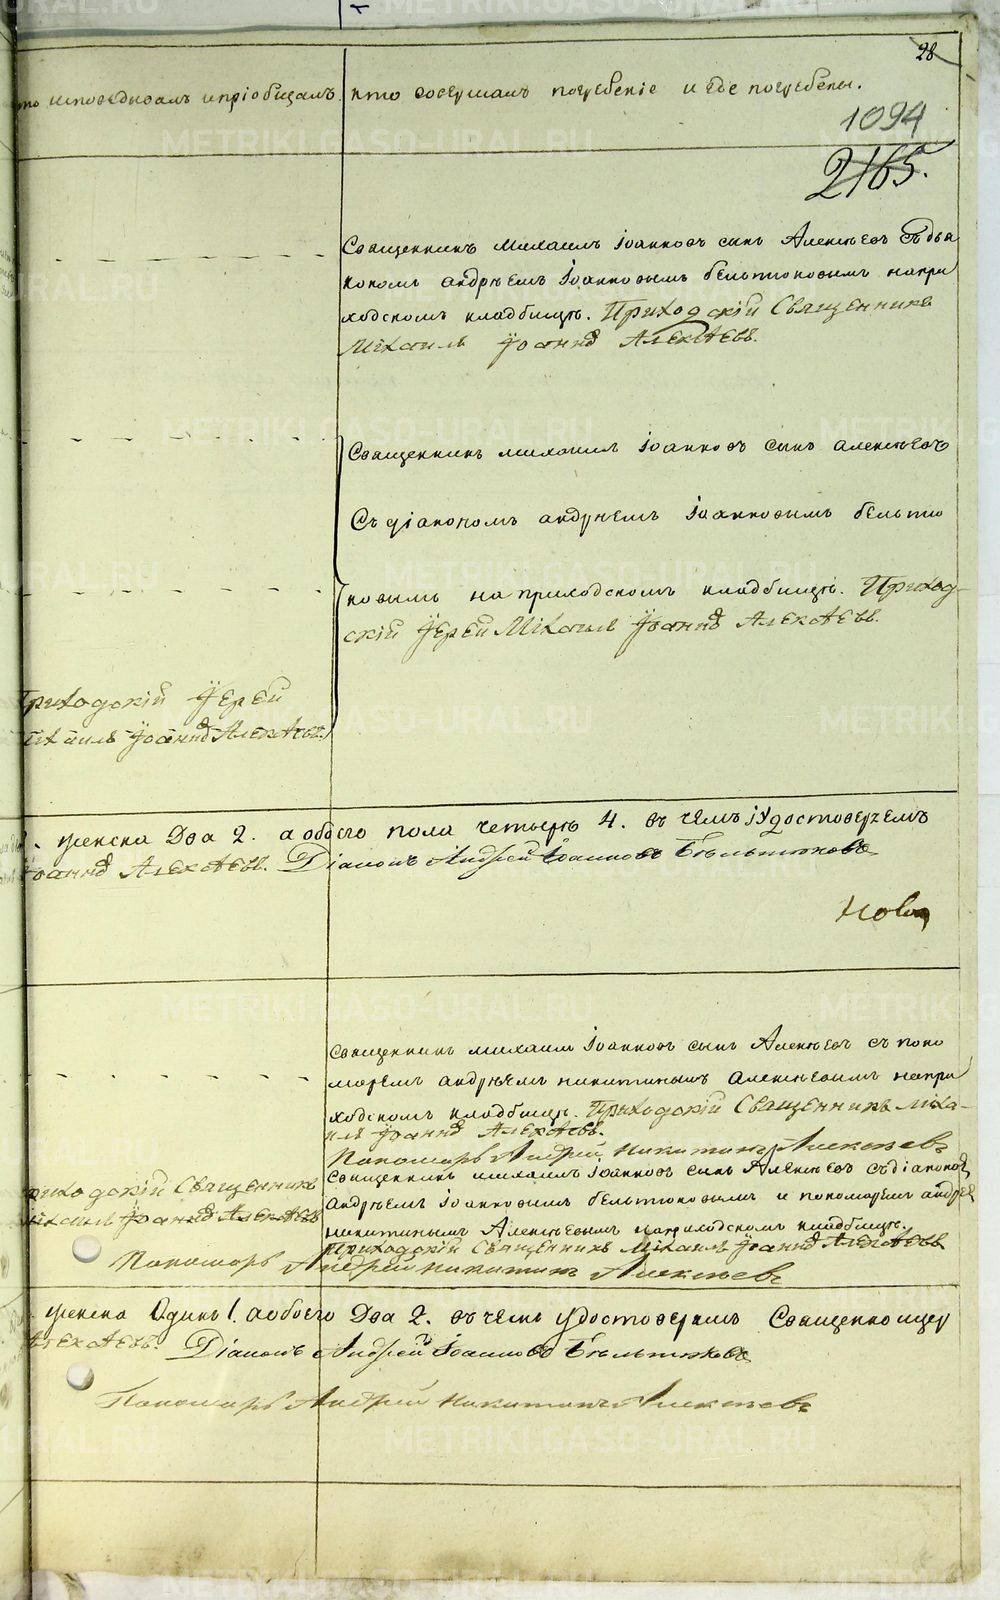 28
кто исповедывалъ и пріобщалъ. кто совершалъ погребеніе и где погребены.
1094
2165.
Священникъ михаилъ Іоанновъ сынъ Алексѣевъ съ дья
кономъ андрѣемъ Іоанновымъ бельтюковымъ напри
ходскомъ кладбищѣ. Приходскій Священникъ
Міхаилъ Іоаннѡвъ Алекѣевъ.
Священникъ михаилъ Іоанновъ сынъ алексѣевъ
Съ діакономъ андрѣемъ Іоанновымъ бельтю
ковымъ на приходскомъ кладбищѣ. Приход-
скій Іерей Міхаилъ Іоаннѡвъ Алекѣевъ.
Приходскій Іерей
Міхаилъ Іоаннѡвъ Алекѣевъ.
женска Два 2. а обоего пола четыре 4. въ чемъ удостоверяемъ
Іоаннѡвъ Алекѣевъ. Діаконъ Андрей Іоанновъ Бѣльтюковъ
Священникъ михаилъ Іоанновъ сынъ Алексѣевъ съ поно
маремъ андрѣемъ никитинымъ алексѣевымъ напри
ходскомъ кладбищѣ. Приходскій Священникъ Міха-
илъ Іоаннѡвъ Алекѣевъ.
Пономарь Андрей Никитинъ Алексѣевъ
Священникъ михаилъ Іоанновъ сынъ Алексѣевъ съ діакономъ
Андрѣемъ Іоанновымъ бельтюковымъ и пономаремъ андрѣе
никитинымъ Алексѣевымъ наприходскомъ кладбищѣ.
Приходскій Священникъ Міхаилъ Іоаннѡвъ Алекѣевъ
Приходскій Священникъ
Міхаилъ Іоаннѡвъ Алекѣевъ
Пономарь Андрей никитинъ Алексѣевъ
женска Одинъ 1. а обоего Два 2. въ чемъ удостоверяемъ Священноиерей
Алекѣевъ. Діаконъ Андрей Іоанновъ Бѣльтюковъ
Пономарь Андрей никитинъ Алексѣевъ
METRIKI.GASO-URAL.RU